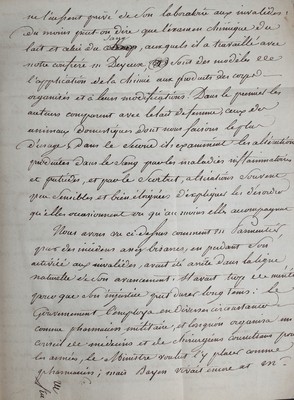 ne l'eussent privé de son laboratoire aux invalides.
du moins peut on dire que l'examen chimique du
lait et celui du sang, auxquels il a travaillé avec
notre confrère M Deyeux, sont des modèles de
l'application de la Chimie aux produits des corps
organisés et à leurs modifications. Dans le premier les
auteurs comparent avec le lait de femme, ceux des
animaux domestiques dont nous faisons le plus
d'usage; dans le second ils examinent les altérations
produites dans le sang par les maladies inflammatoires
et putrides, et par le scorbut, altérations souvent
peu sensibles et bien éloignées d'expliquer les désordres
qu'elles occasionnent ou qu'au moins elles accompagnent
Nous avons vu ci-dessus comment M Parmentier
par des incidens assez bizarres, en perdant son
activité aux invalides, avait été arrêté dans la ligne
naturelle de son avancement. Il avait trop de mérite
pour que cette injustice put durer long tems: le
Gouvernement l'employa en diverses circonstances
comme pharmacien militaire, et lorsqu'on organisa un
conseil de médecins et de chirurgiens consultans pour
les armées, le Ministre voulut l'y placer comme
pharmacien; mais Bayen vivait encore et